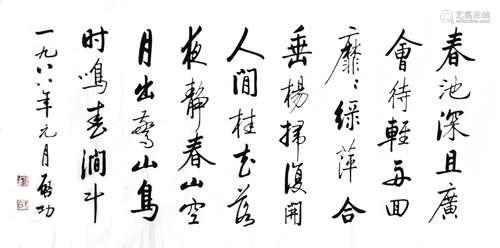 春池深且廣
會待輕舟回
靡靡綠萍合
垂楊掃復開
人間桂花落
夜靜春山空
月出驚山鳥
时鳴春澗中
一九八八年元月啟功